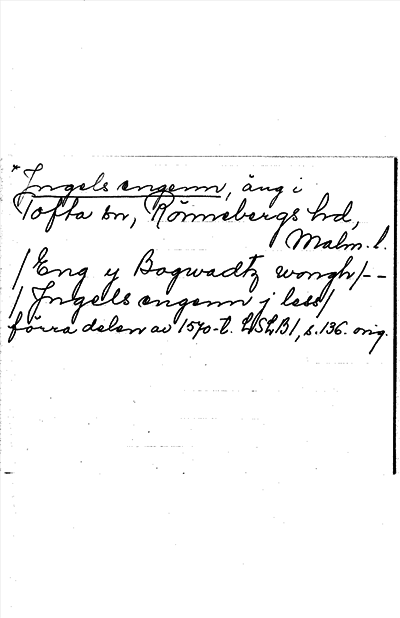 *Jngels engenn, äng i
Tofta sn, Rönnebergs hd,
Malm. l.
/Eng y Bogwadtz wongh/--
/Jngels engenn j less/
förra delen av 1570-t. LSLB1, s.136. orig.